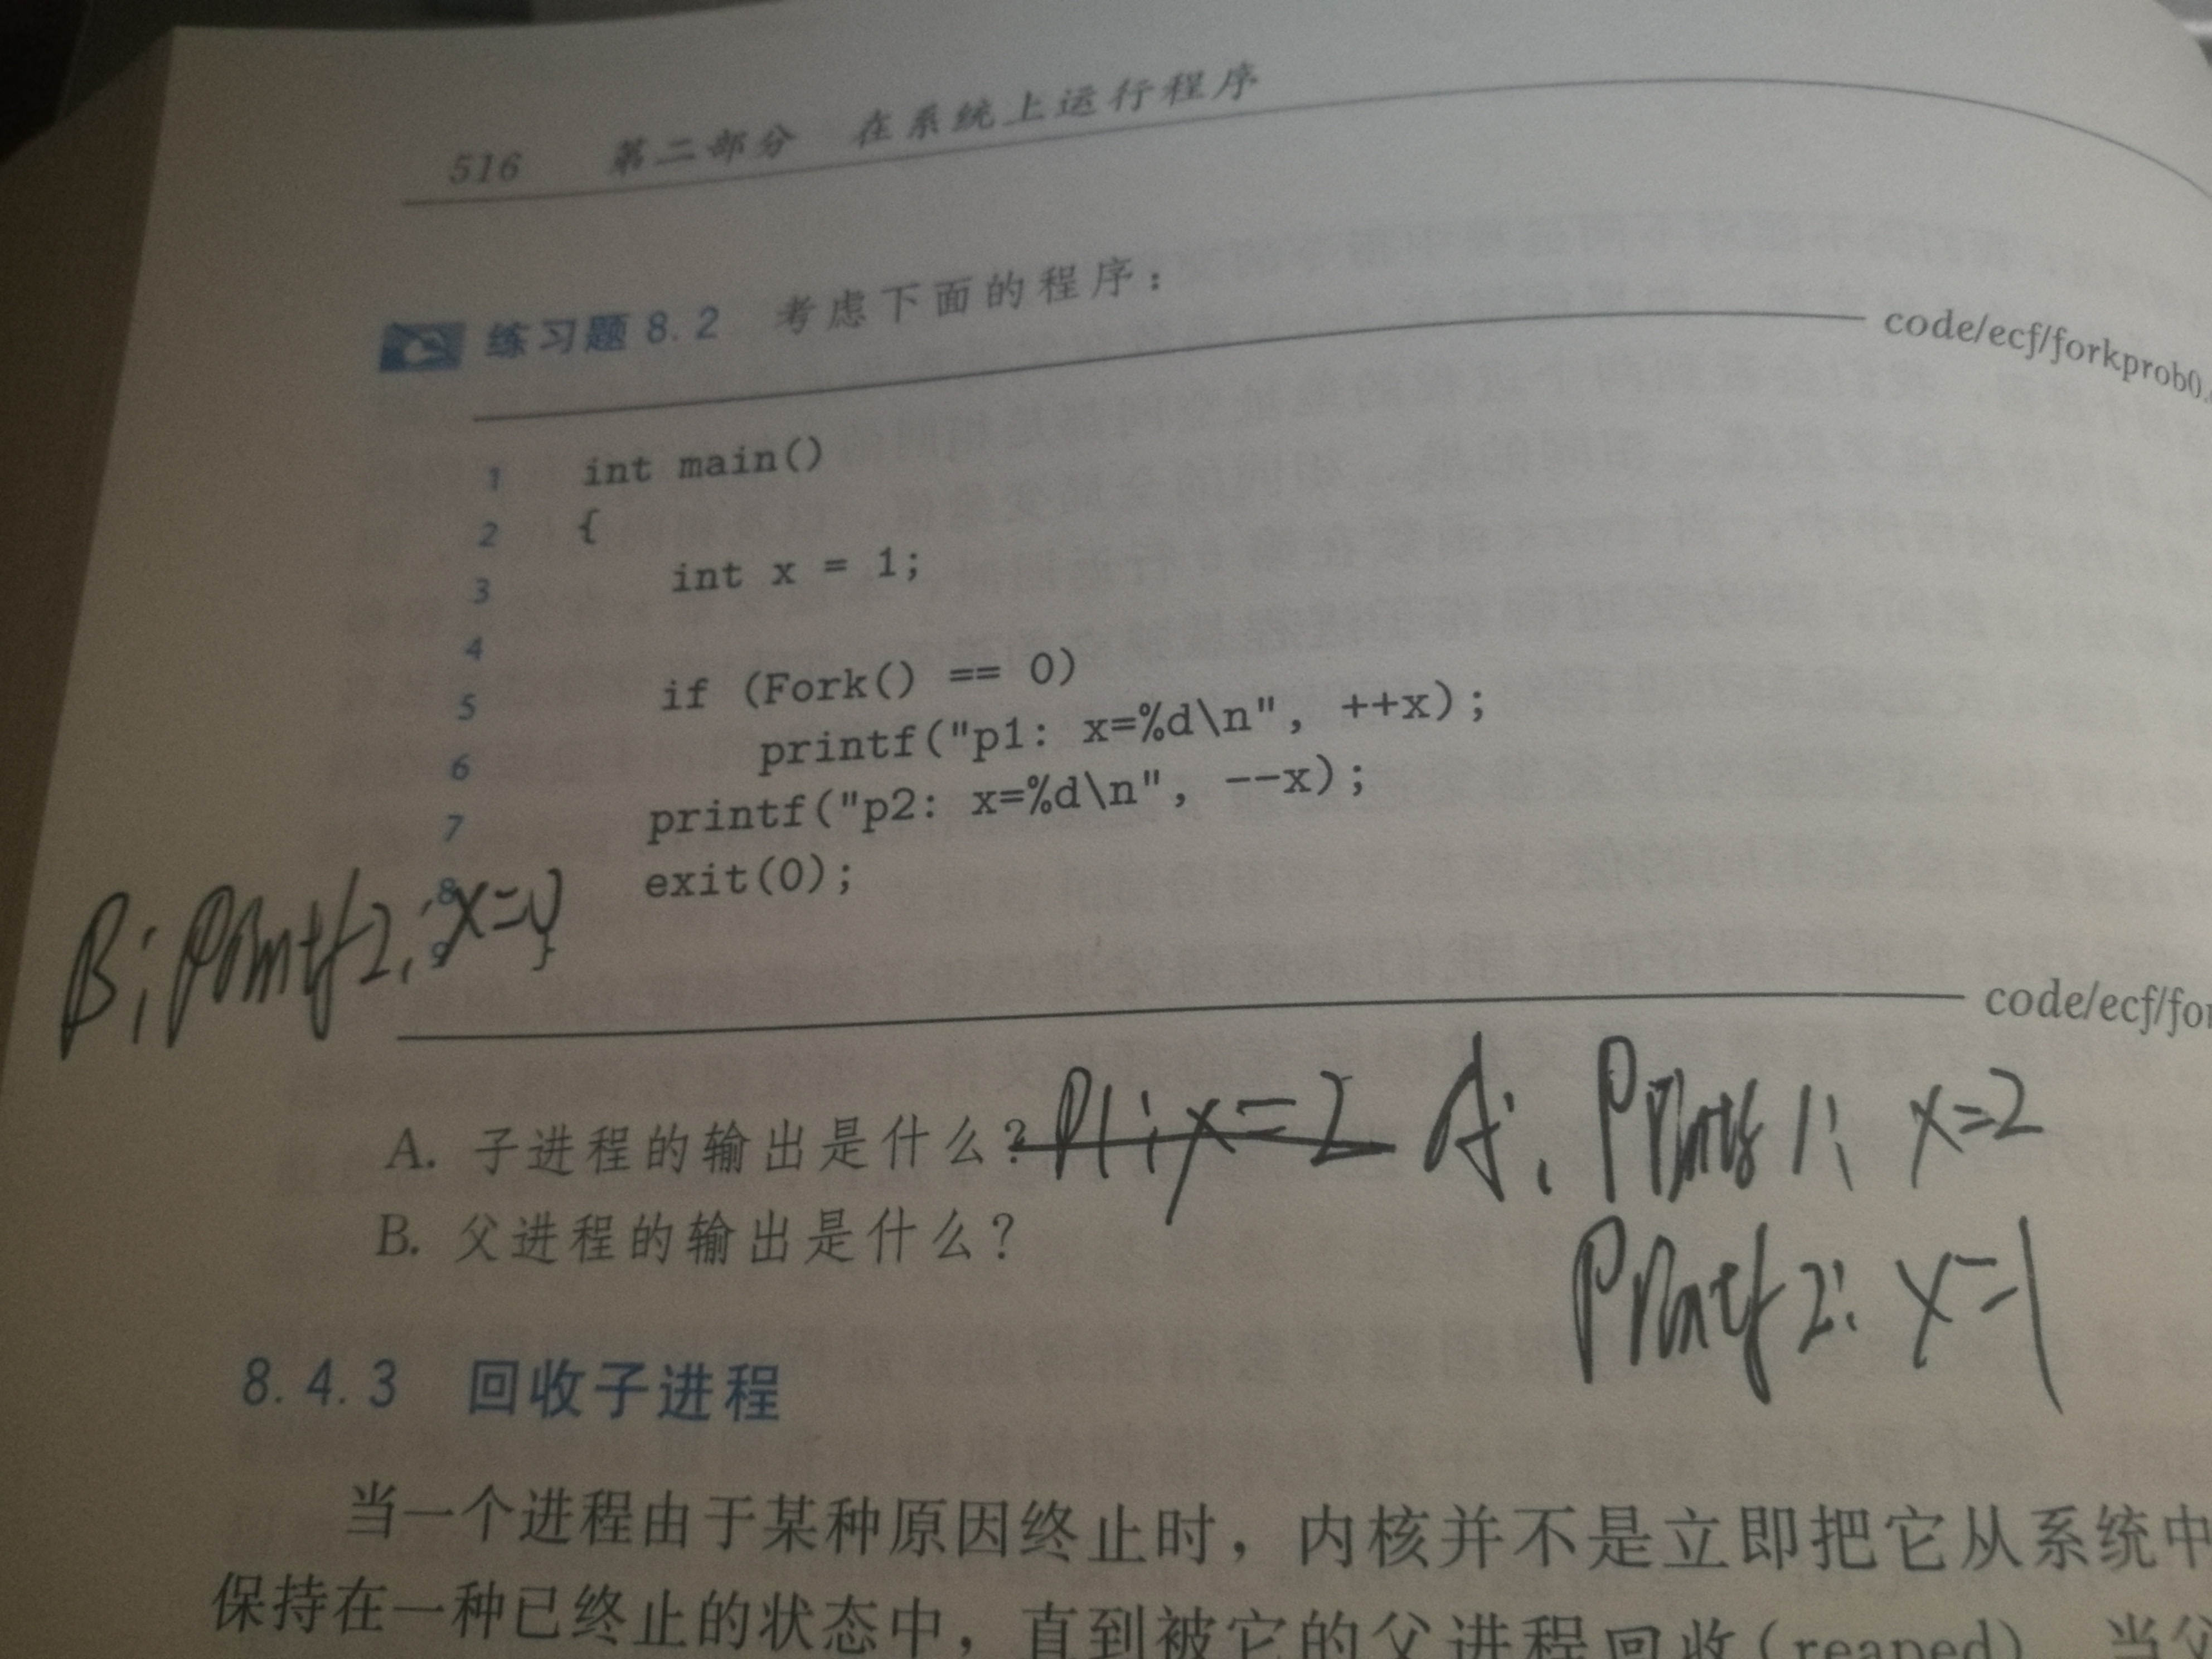 516 第二部分 在系统上运行程序
练习题 8.2 考虑下面的程序：
code/ecf/forkprob0.
1 int main()
2 {
3 int x = 1;
4
5 if (Fork() == 0)
6 printf("p1: x=%d\n", ++x);
7 printf("p2: x=%d\n", --x);
8 exit(0);
9 }
B: printf2: x=0
code/ecf/for
A. 子进程的输出是什么？ P1: x=2 A: Printf 1: x=2
B. 父进程的输出是什么？
Printf 2: x=1
8.4.3 回收子进程
当一个进程由于某种原因终止时，内核并不是立即把它从系统中
保持在一种已终止的状态中，直到被它的父进程回收(reaped)。当父